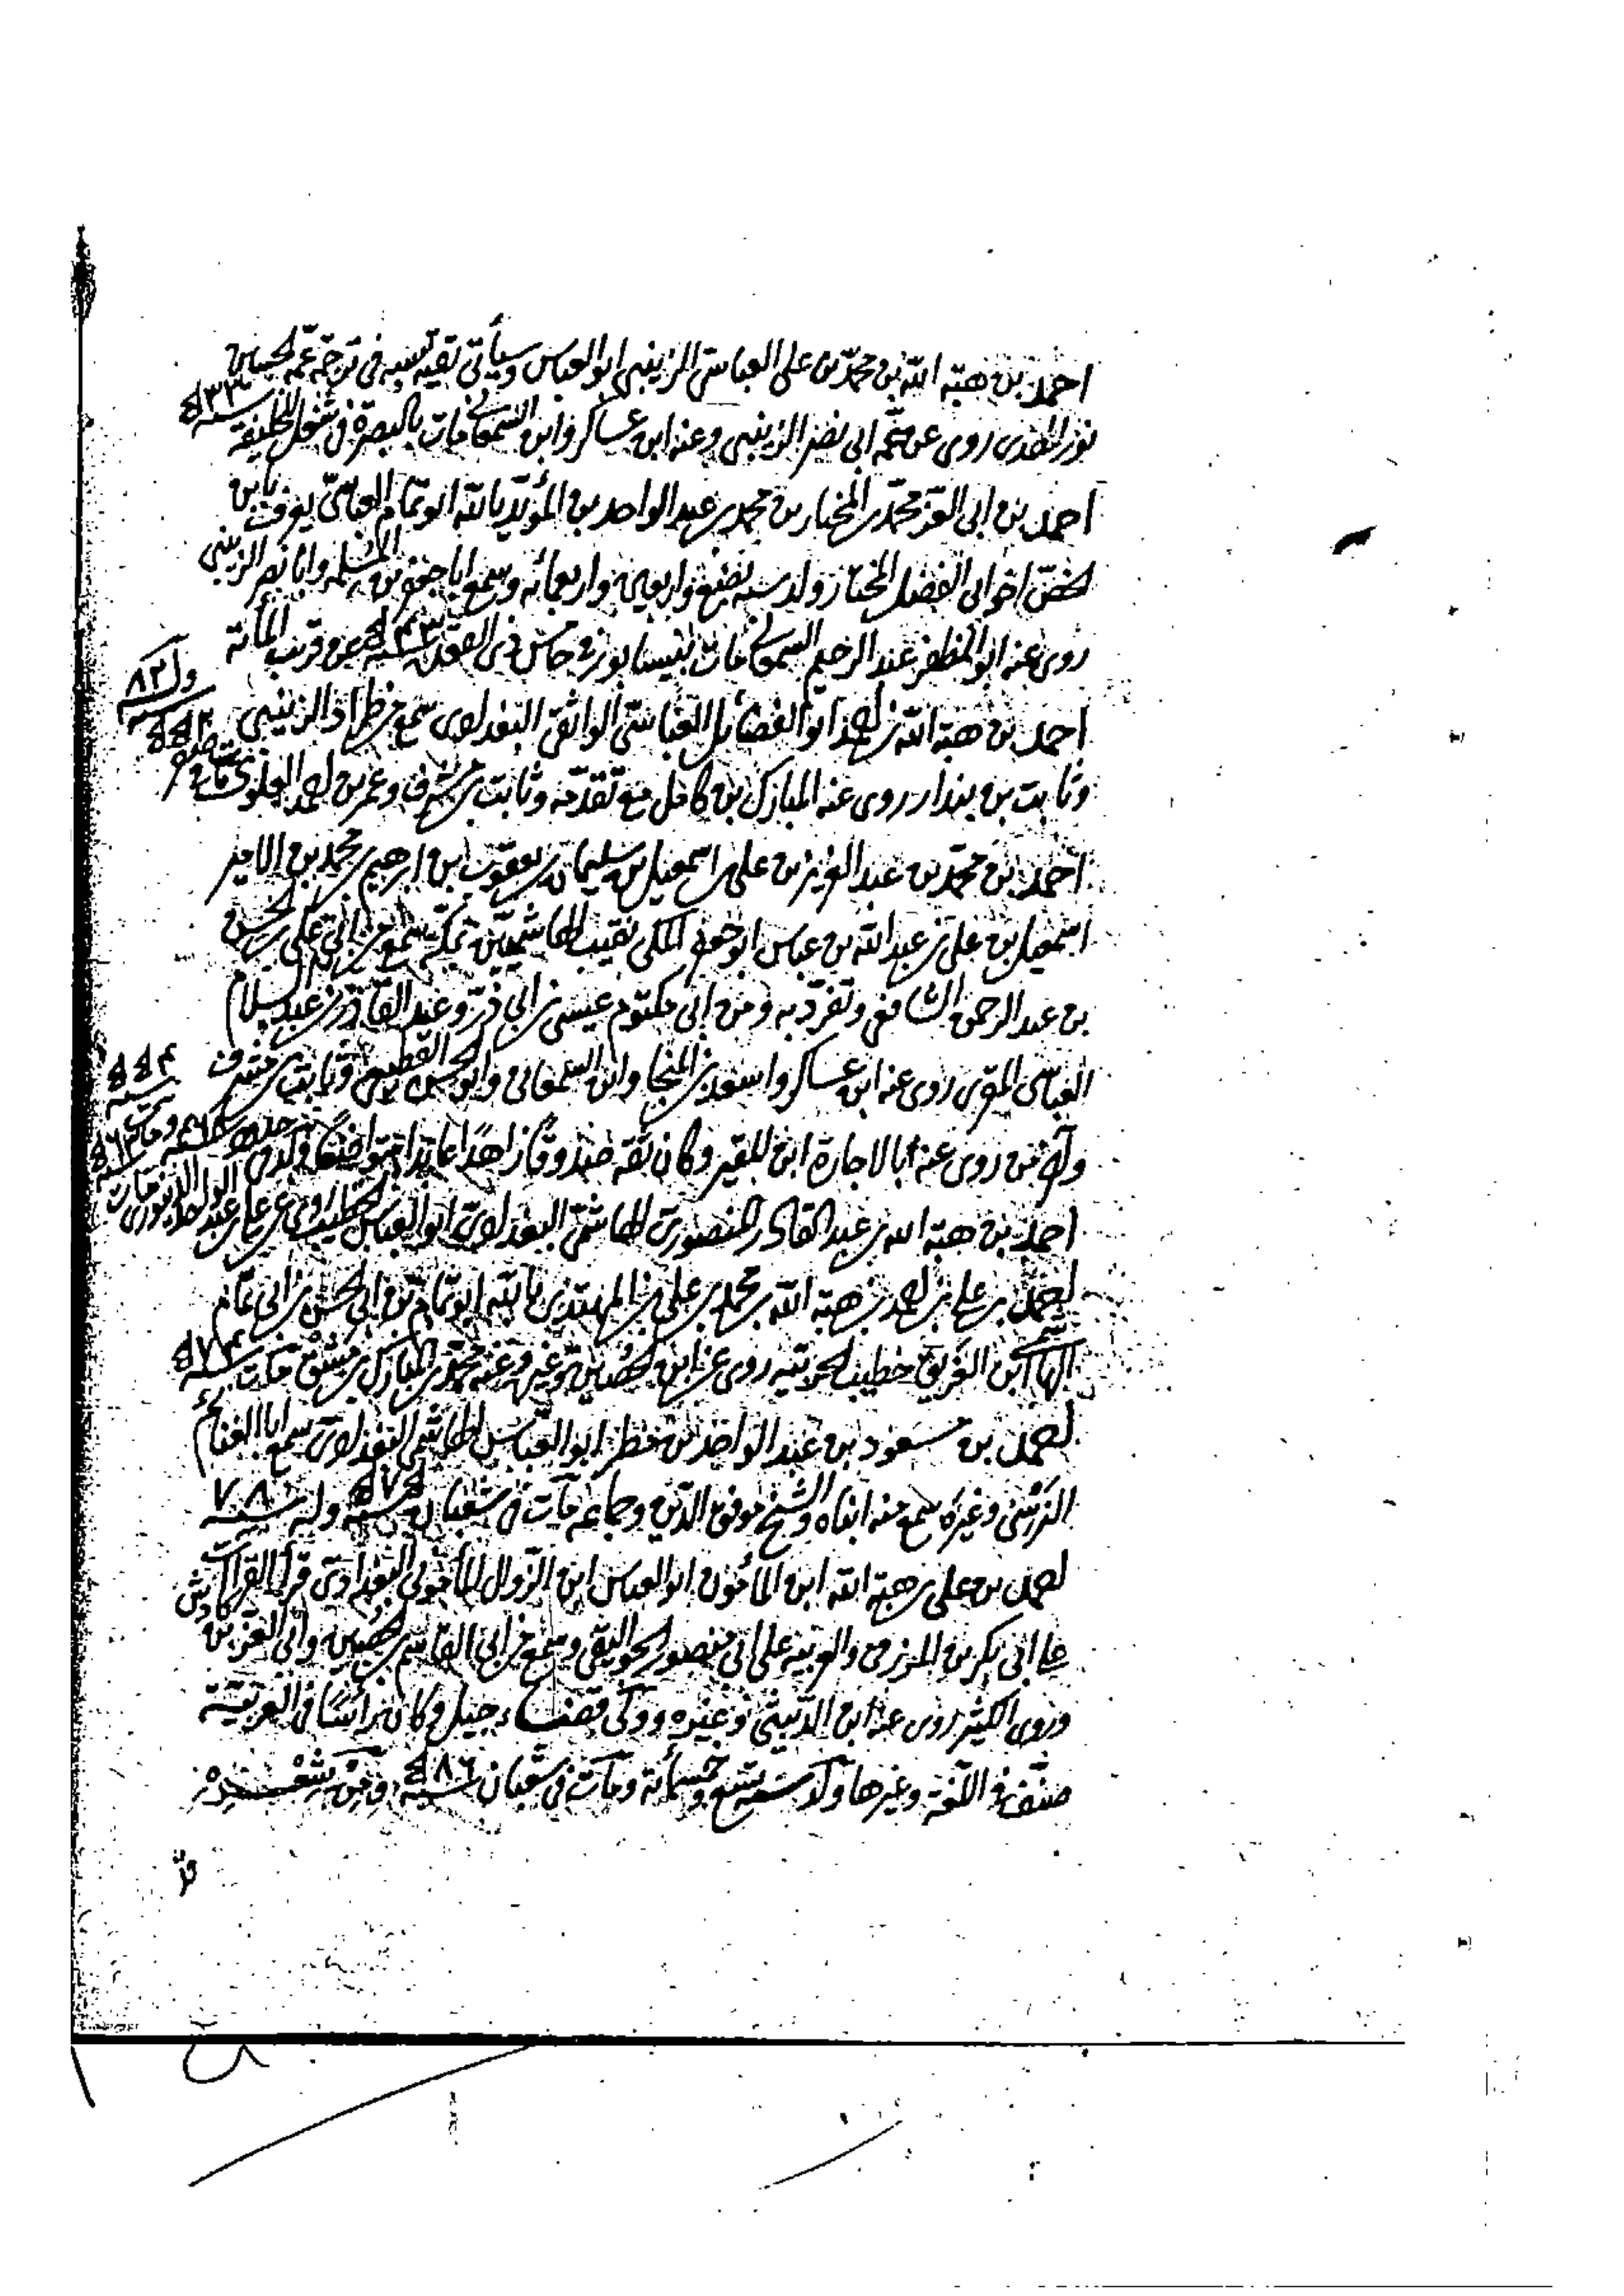 احمد بن هبة الله بن محمد بن علي العباسي الزينبي ابو العباس وسيأتي بقية نسبه في ترجمة عمه الحسين
نور الهدى روى عن عمه ابي نصر الزينبي وعنه ابن عساكر وابن السمعاني مات بالبصرة في شغل الخليفة سنة ٥٣٣
احمد بن ابي العز محمد بن المختار بن محمد بن عبد الواحد بن المؤيد بالله ابو تمام العباسي يعرف بابن
الخص اخو ابي الفضل المختار ولد سنة بضع واربعين واربعمائة وسمع ابا جعفر بن المسلمة وابا نصر الزينبي
روى عنه ابو المظفر عبد الرحيم السمعاني مات بنيسابور في خامس ذي القعدة سنة ٥٤٣ عن قريب المائة
احمد بن هبة الله بن احمد ابو الفضائل العباسي الواثقي البغدادي سمع طراد الزينبي
وثابت بن بندار روى عنه المبارك بن كامل مع تقدمه وثابت بن مشرف وعمر بن احمد العلوي
احمد بن محمد بن عبد العزيز بن علي بن اسمعيل بن سليمان بن يعقوب ابن ابرهيم بن محمد بن الامير
اسمعيل بن علي بن عبد الله بن عباس ابو جعفر المكي نقيب الهاشميين بمكة سمع من ابي علي الحسن
بن عبد الرحمن الشافعي وتفرد به ومن ابي مكتوم عيسى بن ابي ذر وعبد القادر بن عبد السلام
العباسي المقري روى عنه ابن عساكر واسعد بن المنجا وابن السمعاني وابو الحسن القطيعي وثابت بن مشرف
وآخر من روى عنه بالاجازة ابن المقير وكان ثقة صدوقا زاهدا عابدا متواضعا
احمد بن هبة الله بن عبد القادر المنصوري الهاشمي البغدادي ابو العباس الخطيب روى عن
احمد بن علي بن احمد بن هبة الله بن محمد بن علي بن المهتدي بالله ابو تمام بن ابي الحسن بن ابي تمام
الهاشمي ابن الغريق خطيب الحربية روى عن ابن الحصين وغيره وعنه محمد بن المبارك بن مشق مات سنة ٥٧٤
احمد بن مسعود بن عبد الواحد بن مطر ابو العباس الهاشمي البغدادي سمع ابا الغنائم
النرسي وغيره سمع منه ابناه والشيخ موفق الدين وجماعة مات في شعبان سنة ٥٧٥ وله ٧٨ سنة
احمد بن علي بن هبة الله ابن المأمون ابو العباس ابن الزوال المأموني البغدادي قرأ القراآت
على ابي بكر بن المزرفي والعربية على ابي منصور الجواليقي وسمع من ابي القاسم بن الحصين وابي العز بن كادش
وروى الكثير روى عنه ابن الدبيثي وغيره وولي قضاء دجيل وكان رأسا في العربية
صنف في اللغة وغيرها ولد سنة تسع وخمسمائة ومات في شعبان سنة ٥٨٦ ومن شعره